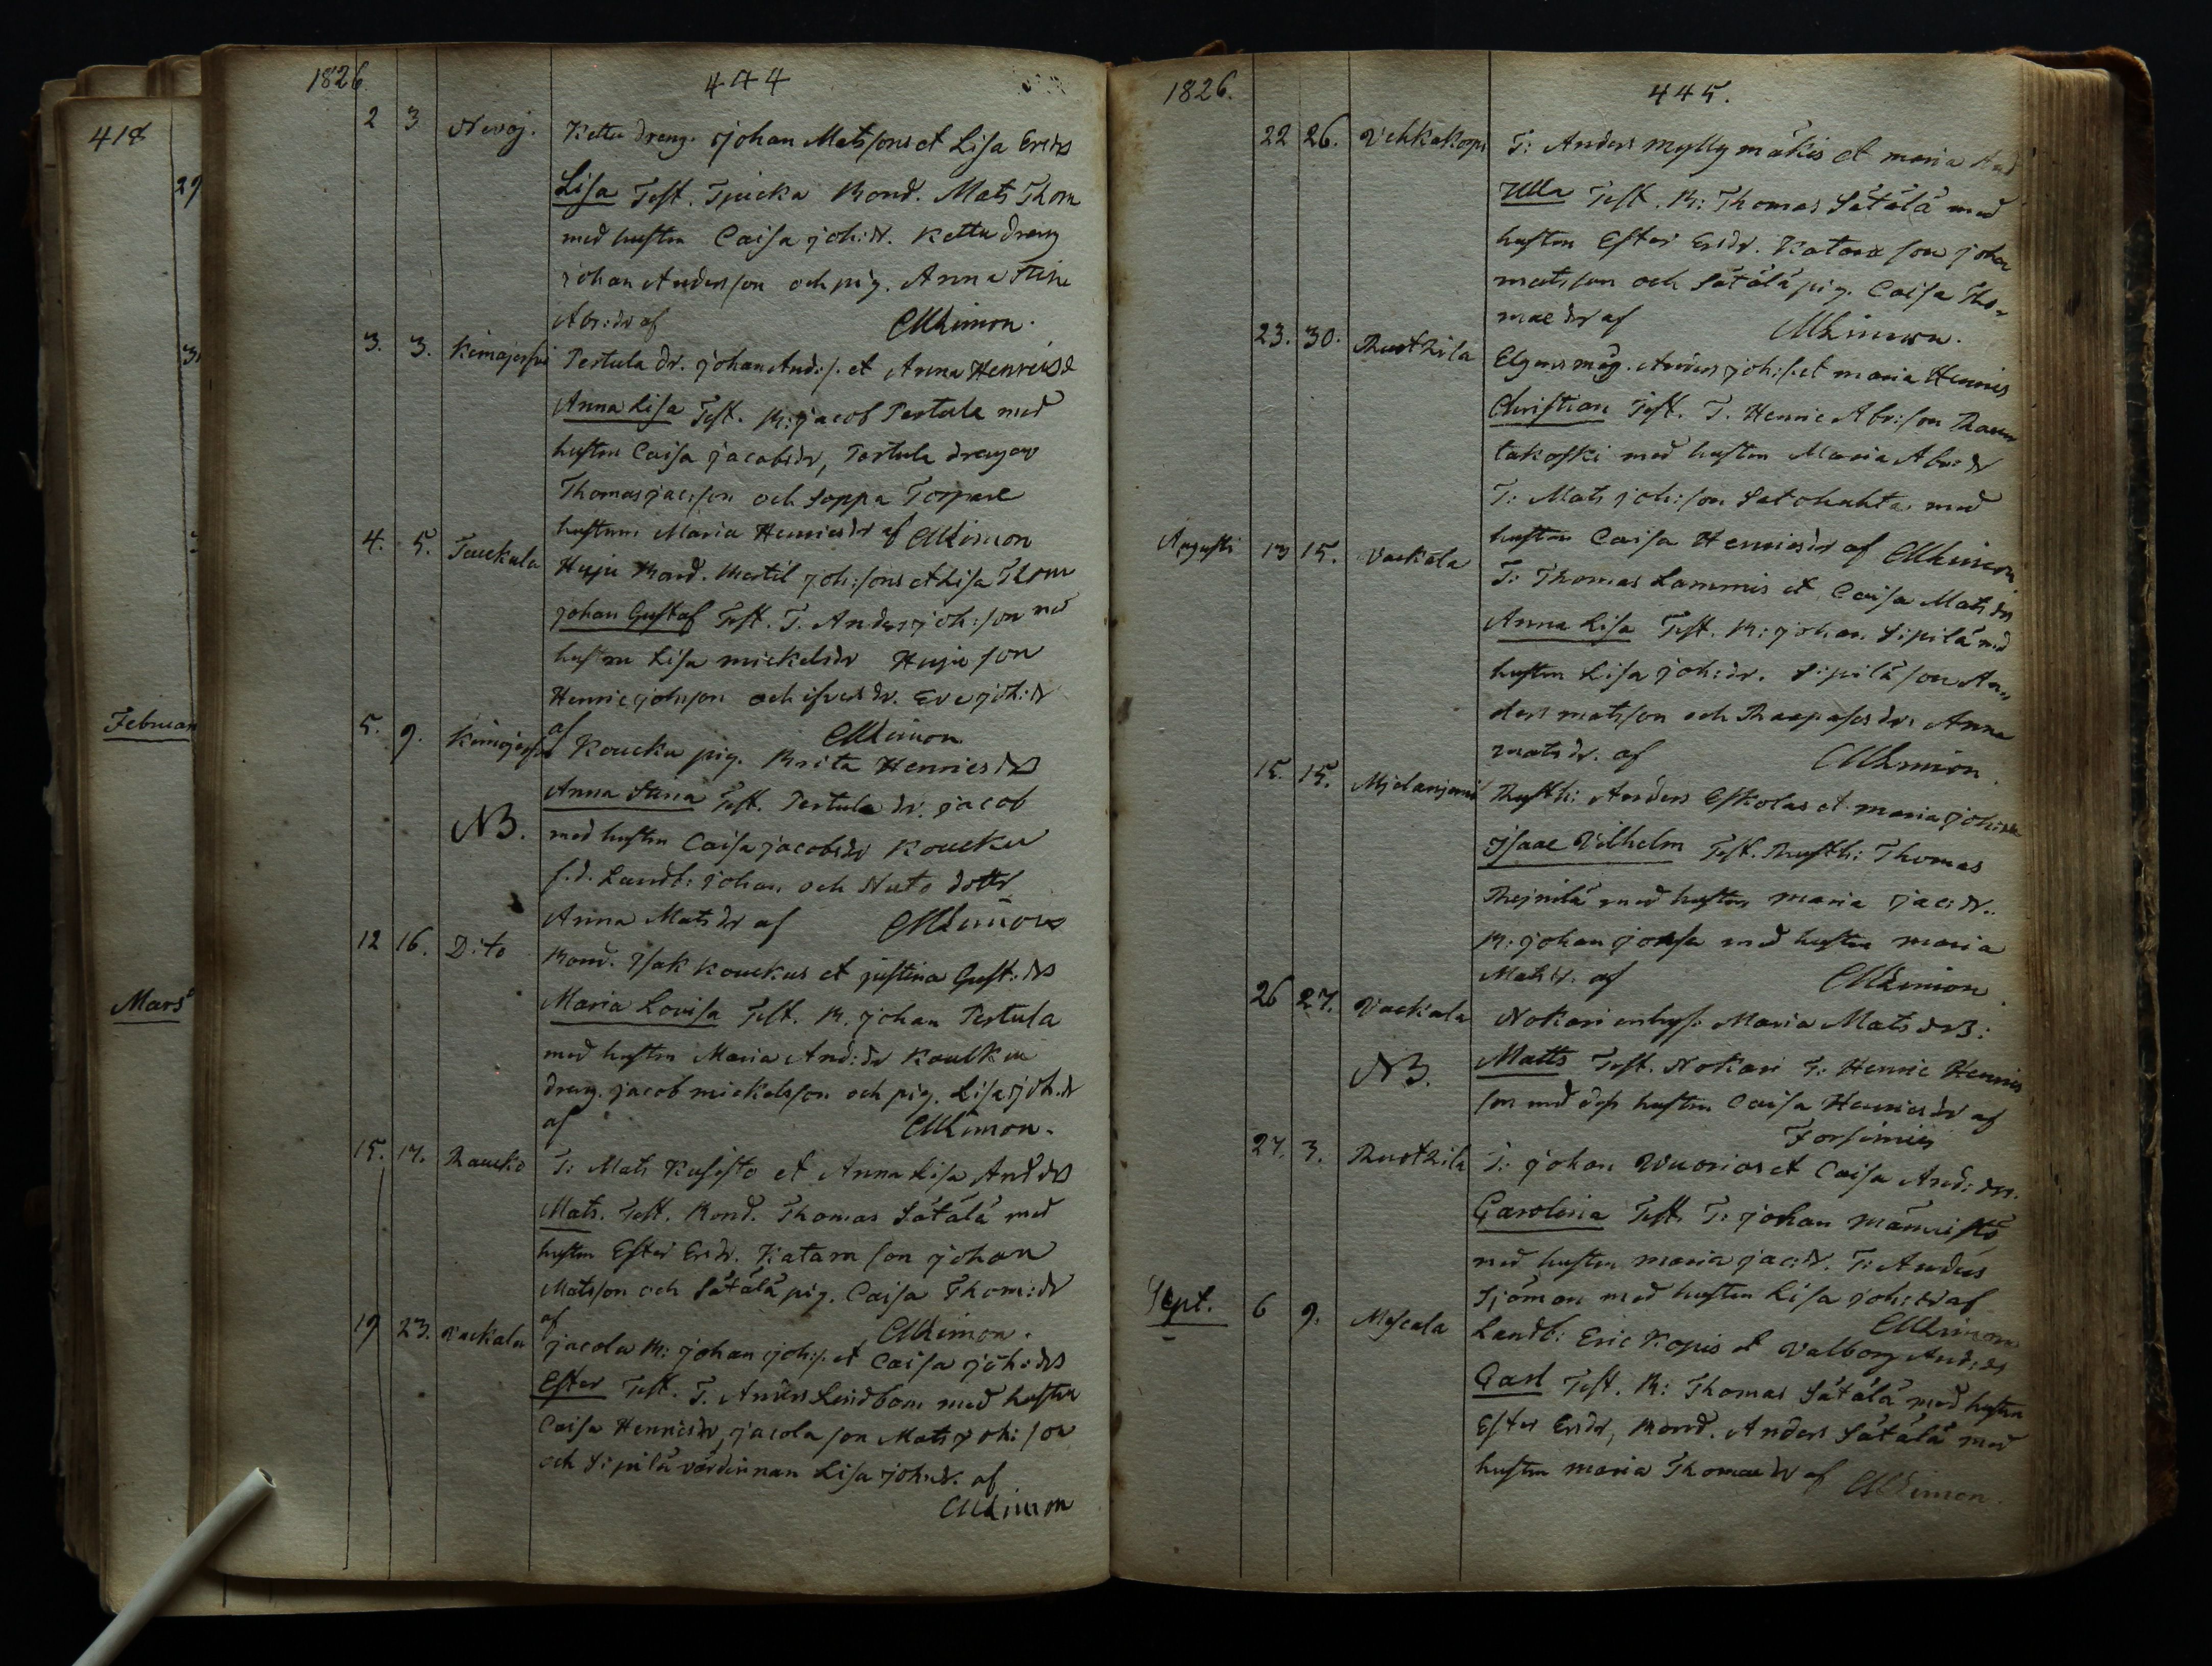 418
29
3
Februari
Mars
1826
444
2 3 Nevoj. Kettu dreng. Johan Matssons et Lisa Ericds
Lisa Test. Bond. Mats Thom
med hustru Caisa Joh:dr. Kettu dreng
Johan Andersson och pig. Anna Stin
Abr:dr af CMLimon.
3. 3. Kimojerfvi Pertula dr. Johan And:s. et Anna Henricsd
Anna Lisa Test. B: Jacob Pertula med
hustru Caisa Jacobsdr, Pertula drengen
Thomas Jac:son och Soppa Torpare
hustrun Maria Henricsdr af CMLimon
4. 5. Tauckala Huju Bond. Mertil Joh:sons et Lisa Thom
Johan Gustaf Test. T. Anders Joh:son med
hustru Lisa Mickelsdr Huju son
Henric Johnson och dr. Eva Joh:dr
af CMLimon
5. 9. Kimojerfvi Koucku pig. Brita Henricsdrs
Anna Stina Test. Pertula dr. Jacob
NB. med hustru Caisa Jacobsdr Koucku
f.d. Landb: Johan och Nuto dottr
Anna Matsdr af CMLimon
12 16. Dito Bond. Isak Kouckus et Justina Gust:drs
Maria Lovisa Test. B. Johan Pertula
med hustru Maria And:dr Koucku
dreng. Jacob Mickelsson och pig. Lisa Joh:dr
af CMLimon.
15. 17. Raucko T: Mats Kusisto et Anna Lisa And:drs
Mats. Test. Bond. Thomas Sätälä med
hustru Ester Ersdr. Katara son Johan
Matsson och Sätälä pig. Caisa Thom:dr
af CMLimon.
19 23. Vackala Jacola B: Johan Joh:s. et Caisa Joh:drs
Ester Test. T. Anders Lindbom med hustru
Caisa Henricsdr, Jacola son Mats Joh:son
och Sipilä värdinnan Lisa Joh:dr. af
CMLimon
1826.
445.
22 26. Vehkakorpi T: Anders Myllymäkis et Maria And
Ulla Test. B: Thomas Sätälä med
hustru Ester Ersdr. Katara son Johan
Matsson och Sätälä pig. Caisa Tho-
mae dr af CMLimon.
23. 30. Rustkila Elgens måg. Anders Joh:s. et Maria Henrics
Christian Test. T. Henric Abr:son Rau
takoski med hustru Maria Abr:dr
T: Mats Joh:son Satohuhta med
hustru Caisa Henricsdr af CMLimon
Augusti 13 15. Vackala T: Thomas Lammis et Caisa Matsdrs
Anna Lisa Test. B: Johan Sipilä med
hustru Lisa Joh:dr. Sipilä son An-
ders Matsson och dr. Anna
Matsdr. af CMLimon.
15. 15. Rusth: Anders Eskolas et Maria Joh:drs
Isaac Vilhelm Test. Rusth: Thomas
Rejnilä med hustru Maria Jac:dr.
B: Johan Jousa med hustru Maria
Matsdr. af CMLimon.
26 27. Vackala Nokari inhys: Maria Matsdrs:
NB. Matts Test. Nokari T: Henric Henrics
son med dess hustru Caisa Henricsdr af
Forsinius
27. 3. Rustkila T: Johan Vuorias et Caisa And:drs.
Carolina Test. T: Johan Männistö
med hustru Maria Jac:dr. T: Anders
Sjöman med hustru Lisa Joh:dr af
CMLimon
Sept. 6 9. Mescala Landb: Eric Kopis et Valborg And:drs
Carl Test. B: Thomas Sätälä med hustru
Ester Ersdr, Bond. Anders Sätälä med
hustru Maria Thomaedr af CMLimon.